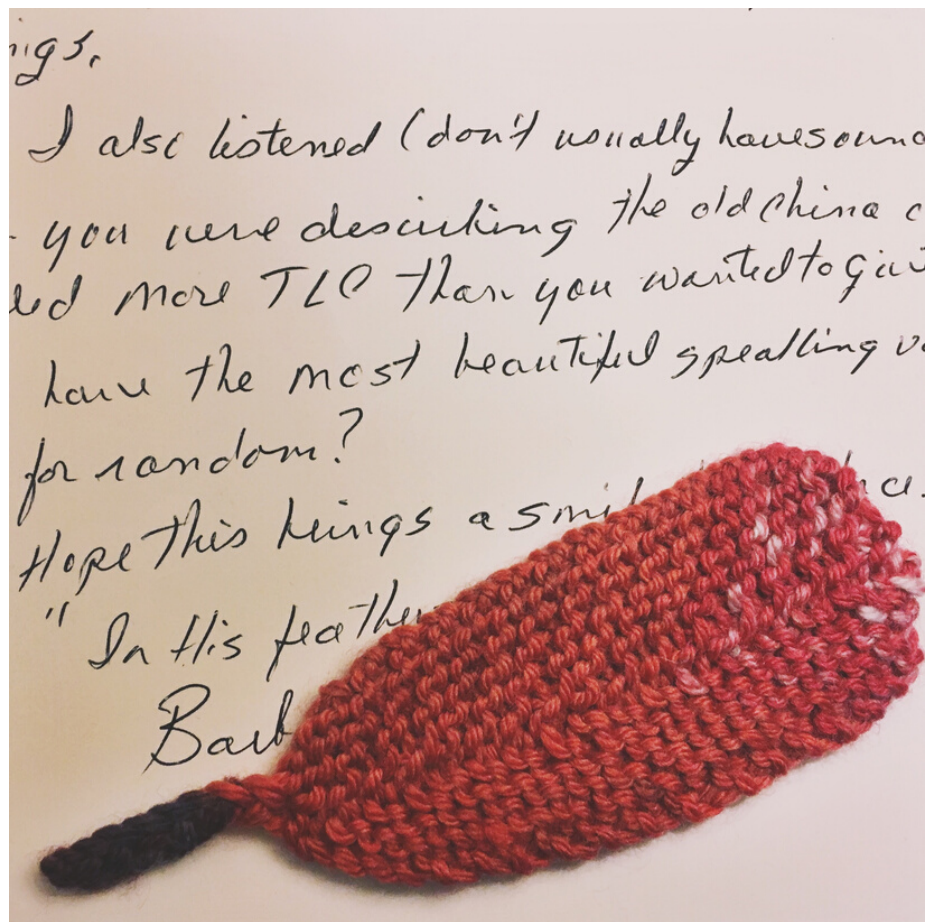 ngs.
I also listened (don't usually have soun
- you were describing the old china c
ed more TLC than you wanted to giv
have the most beautiful speaking v
for random?
Hope this brings a smi
" In His feathe
Barb